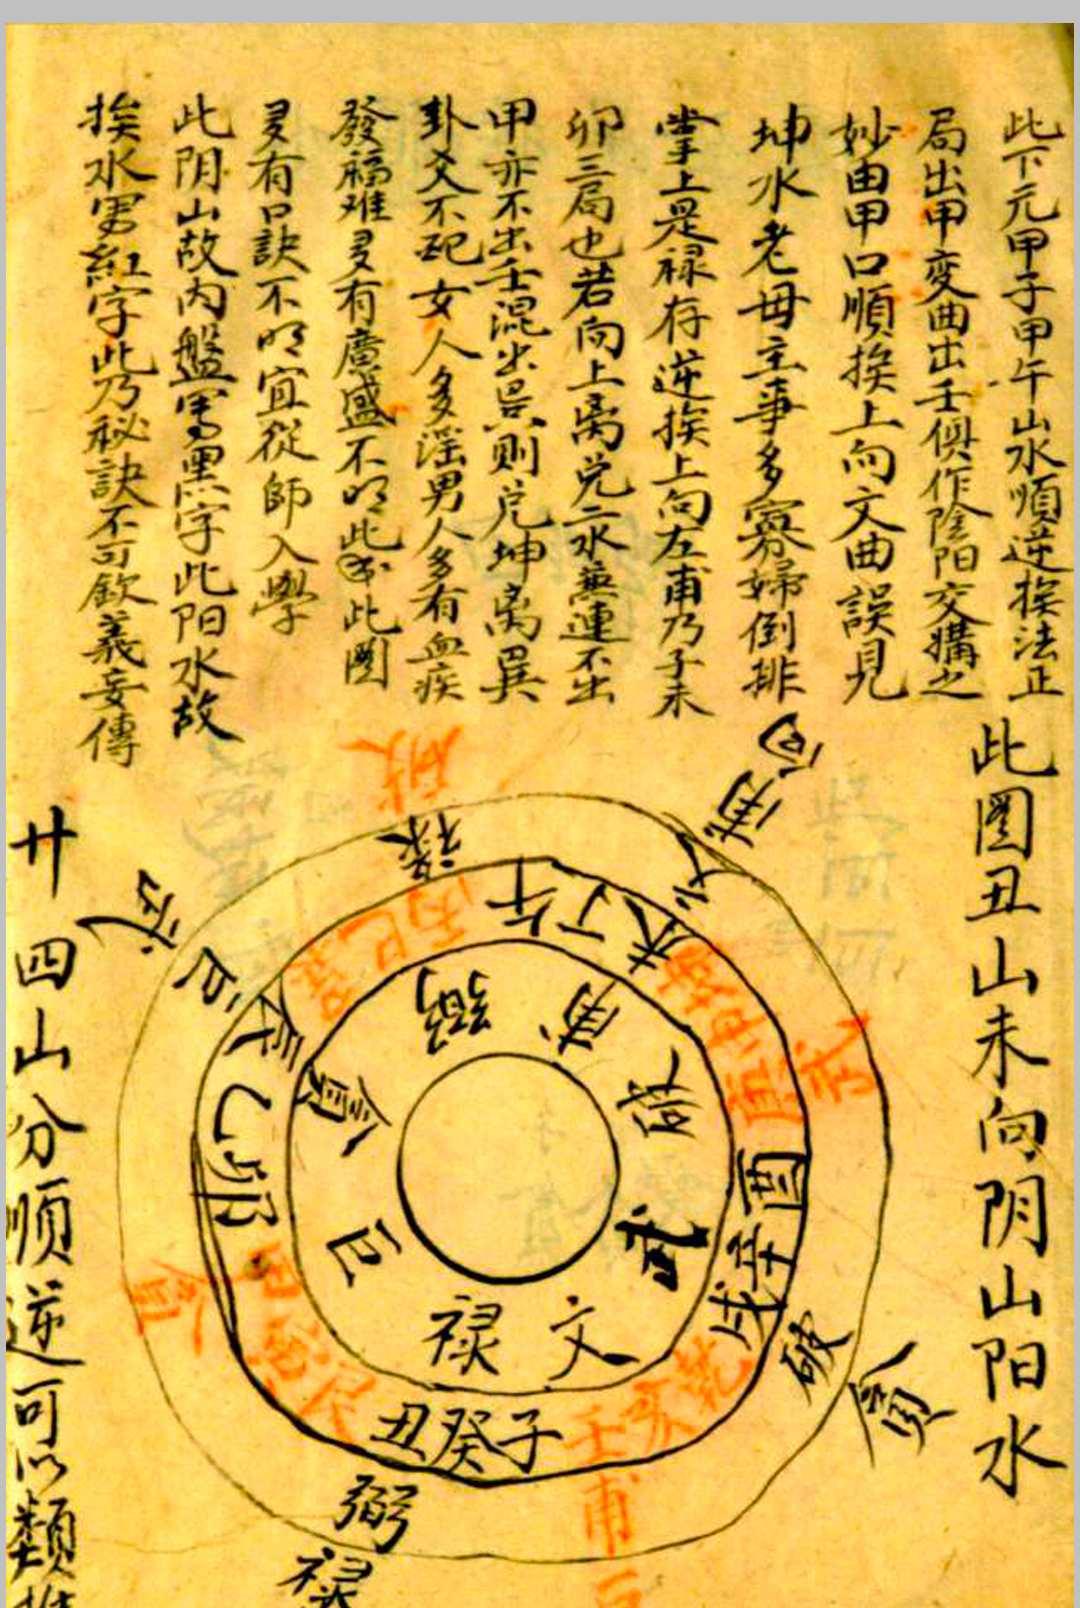 此下元甲子甲午山水順逆挨法正
局出甲变曲出壬俱作陰阳交媾之
妙由甲口順挨上向文曲誤見
坤水老母主事多寡婦倒排
掌上是禄存逆挨上向左甫乃子未
卯三局也若向上离兑二水無連不出
甲亦不出壬混出是则兑坤离巽
卦爻不配女人多淫男人多有血疾
發福难多有廣盛不明此此圖
多有口訣不明宜從師入學
此阴山故内盤写黑字此阳水故
挨水写紅字此乃秘訣不可欽義妄傳
此圖丑山未向阴山阳水
破
禄
向
甫
文
武
巨
丙巳巽
午丁未
坤申庚
武
辰乙卯
酉辛戌
乾亥壬
子癸丑
弼
甫
破
武
文
禄
巨
貪
貪
破
貪
甫
弼
禄
廿四山分順逆可以類推